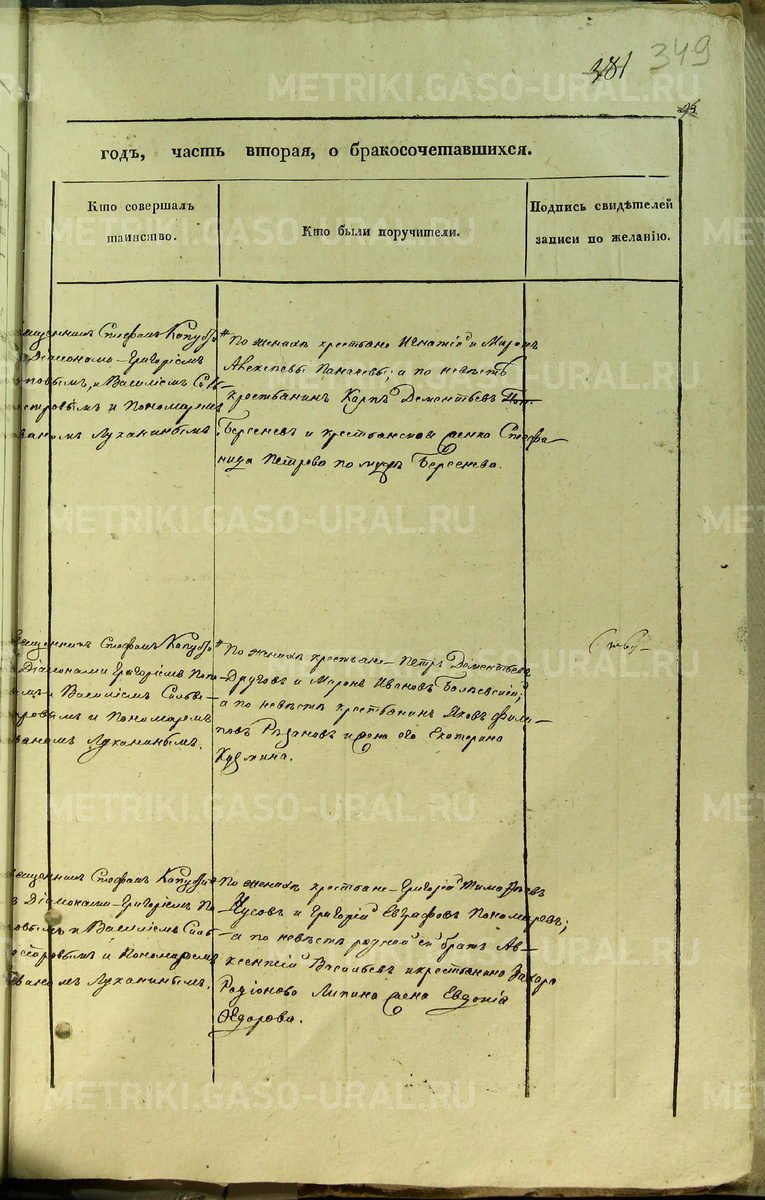 349
381
годъ, часть вторая, о бракосочетавшихся.
Кто совершалъ
таинство.
Кто были поручители.
Подпись свидѣтелей
записи по желанію.
Стефанъ
Діакономъ Григоріемъ
и Василіемъ
и Пономаремъ
Луканинымъ
По женихѣ крестьяне Игнатій и Маронъ
и по невѣстѣ
крестьянинъ Карпъ Дементьевъ
Берсеневъ и крестьянская жена Стефа-
нида Петрова по мужѣ Берсенева.
Стефанъ
Діаконами Григоріемъ Попо-
и Василіемъ Сильве-
и Пономаремъ
Луканинымъ.
По женихѣ крестьяне Петръ Дементьевъ
Друговъ и Маронъ Ивановъ
а по невѣстѣ крестьянинъ Яковъ Фили-
повъ Рязановъ и жена его Екатерина
Кузмина.
Стефанъ
Діаконами Григоріемъ По-
и Василіемъ Силь-
и Пономаремъ
Луканинымъ.
По женихѣ крестьяне Григорій Тимофеевъ
Чусовъ и Григорій Евграфовъ Пономаревъ;
а по невѣстѣ родной ей братъ Ав-
ксентій Васильевъ и крестьянина Захара
Родіонова Липина жена Евдокія
Ѳедорова.
METRIKI.GASO-URAL.RU